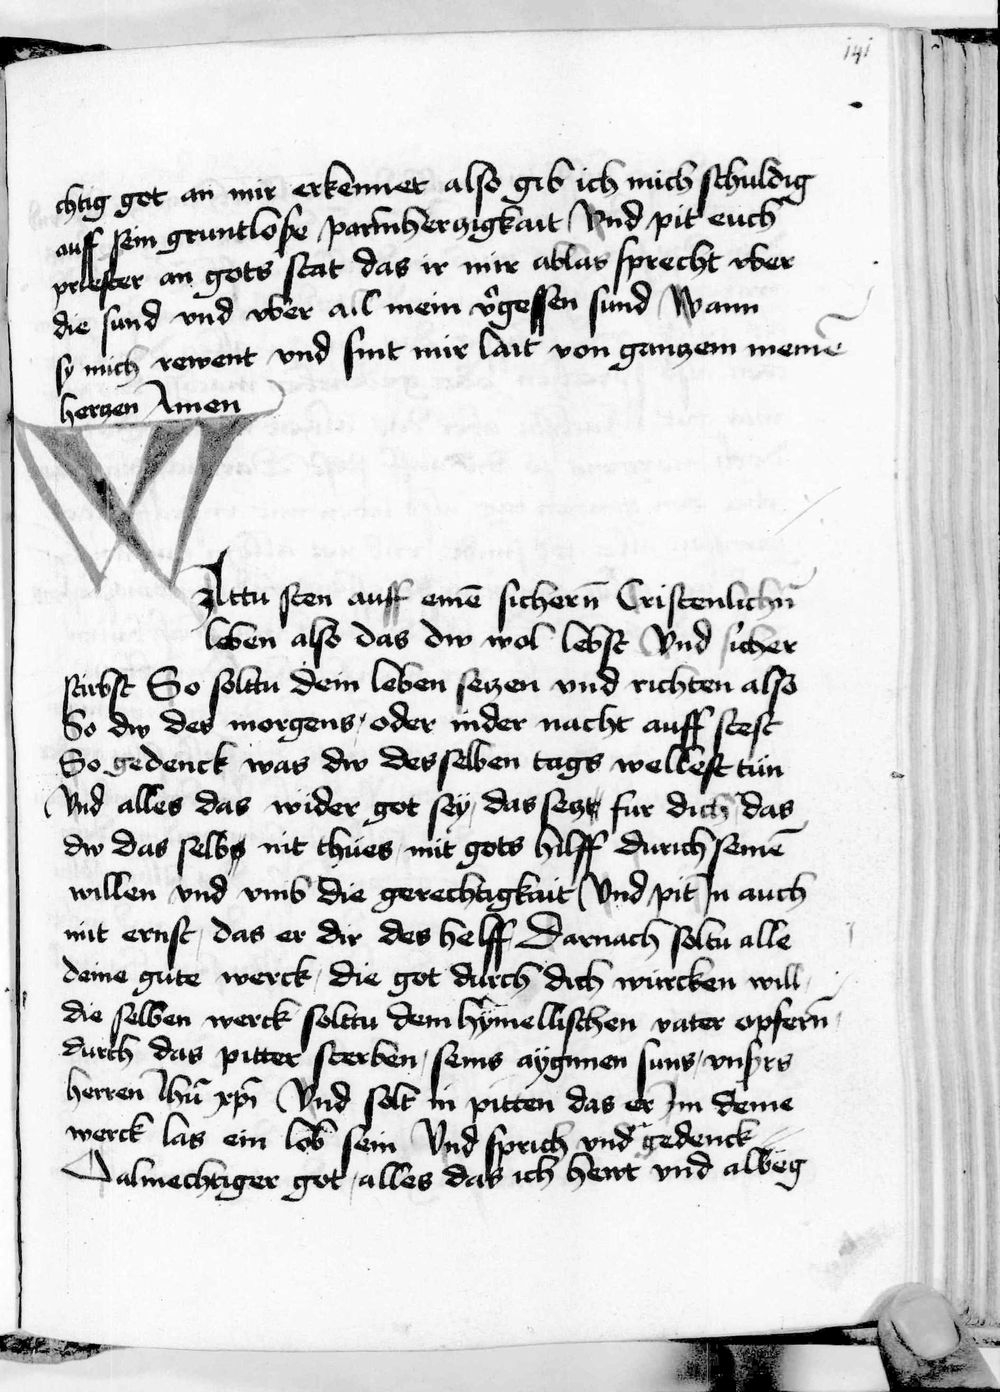 141
chtig got an mir erkennet also gib ich mich schuldig
auff sein gruntlose parmherczigkait Vnd pit euch
priester an gots stat das ir mir ablas sprecht vber
die sund vnd vber all mein v̉gessen sund Wann
sy mich rewent vnd sint mir lait von ganczem meinē
herczen Amen
WIltu sten auff einē sichern̄ Cristenlichn̄
leben also das dw wol lebst Vnd sicher
stirbst So solttu dein leben seczen vnd richten also
So dw des morgens, oder inder nacht auff stest
So gedenck was dw desselben tags wellest tün
Vnd alles das wider got sey, das secz fur dich das
dw das selbs nit thües mit gots hilff durich seinē
willen vnd vmb die gerechtigkait Vnd pit In auch
mit ernst, das er dir des helff Darnach soltu alle
deine gute werck, die got durch dich würcken will,
die selben werck solttu dem hymellischen vater opfern̄,
durch das pitter sterben, seins aygnnen suns, vnsers
herren Ihū xp̄i Vnd solt in pitten das er Im deine
werck las ein lob sein Vnd sprich vnd gedenck
O almechtiger got, alles das ich hewt vnd albeg